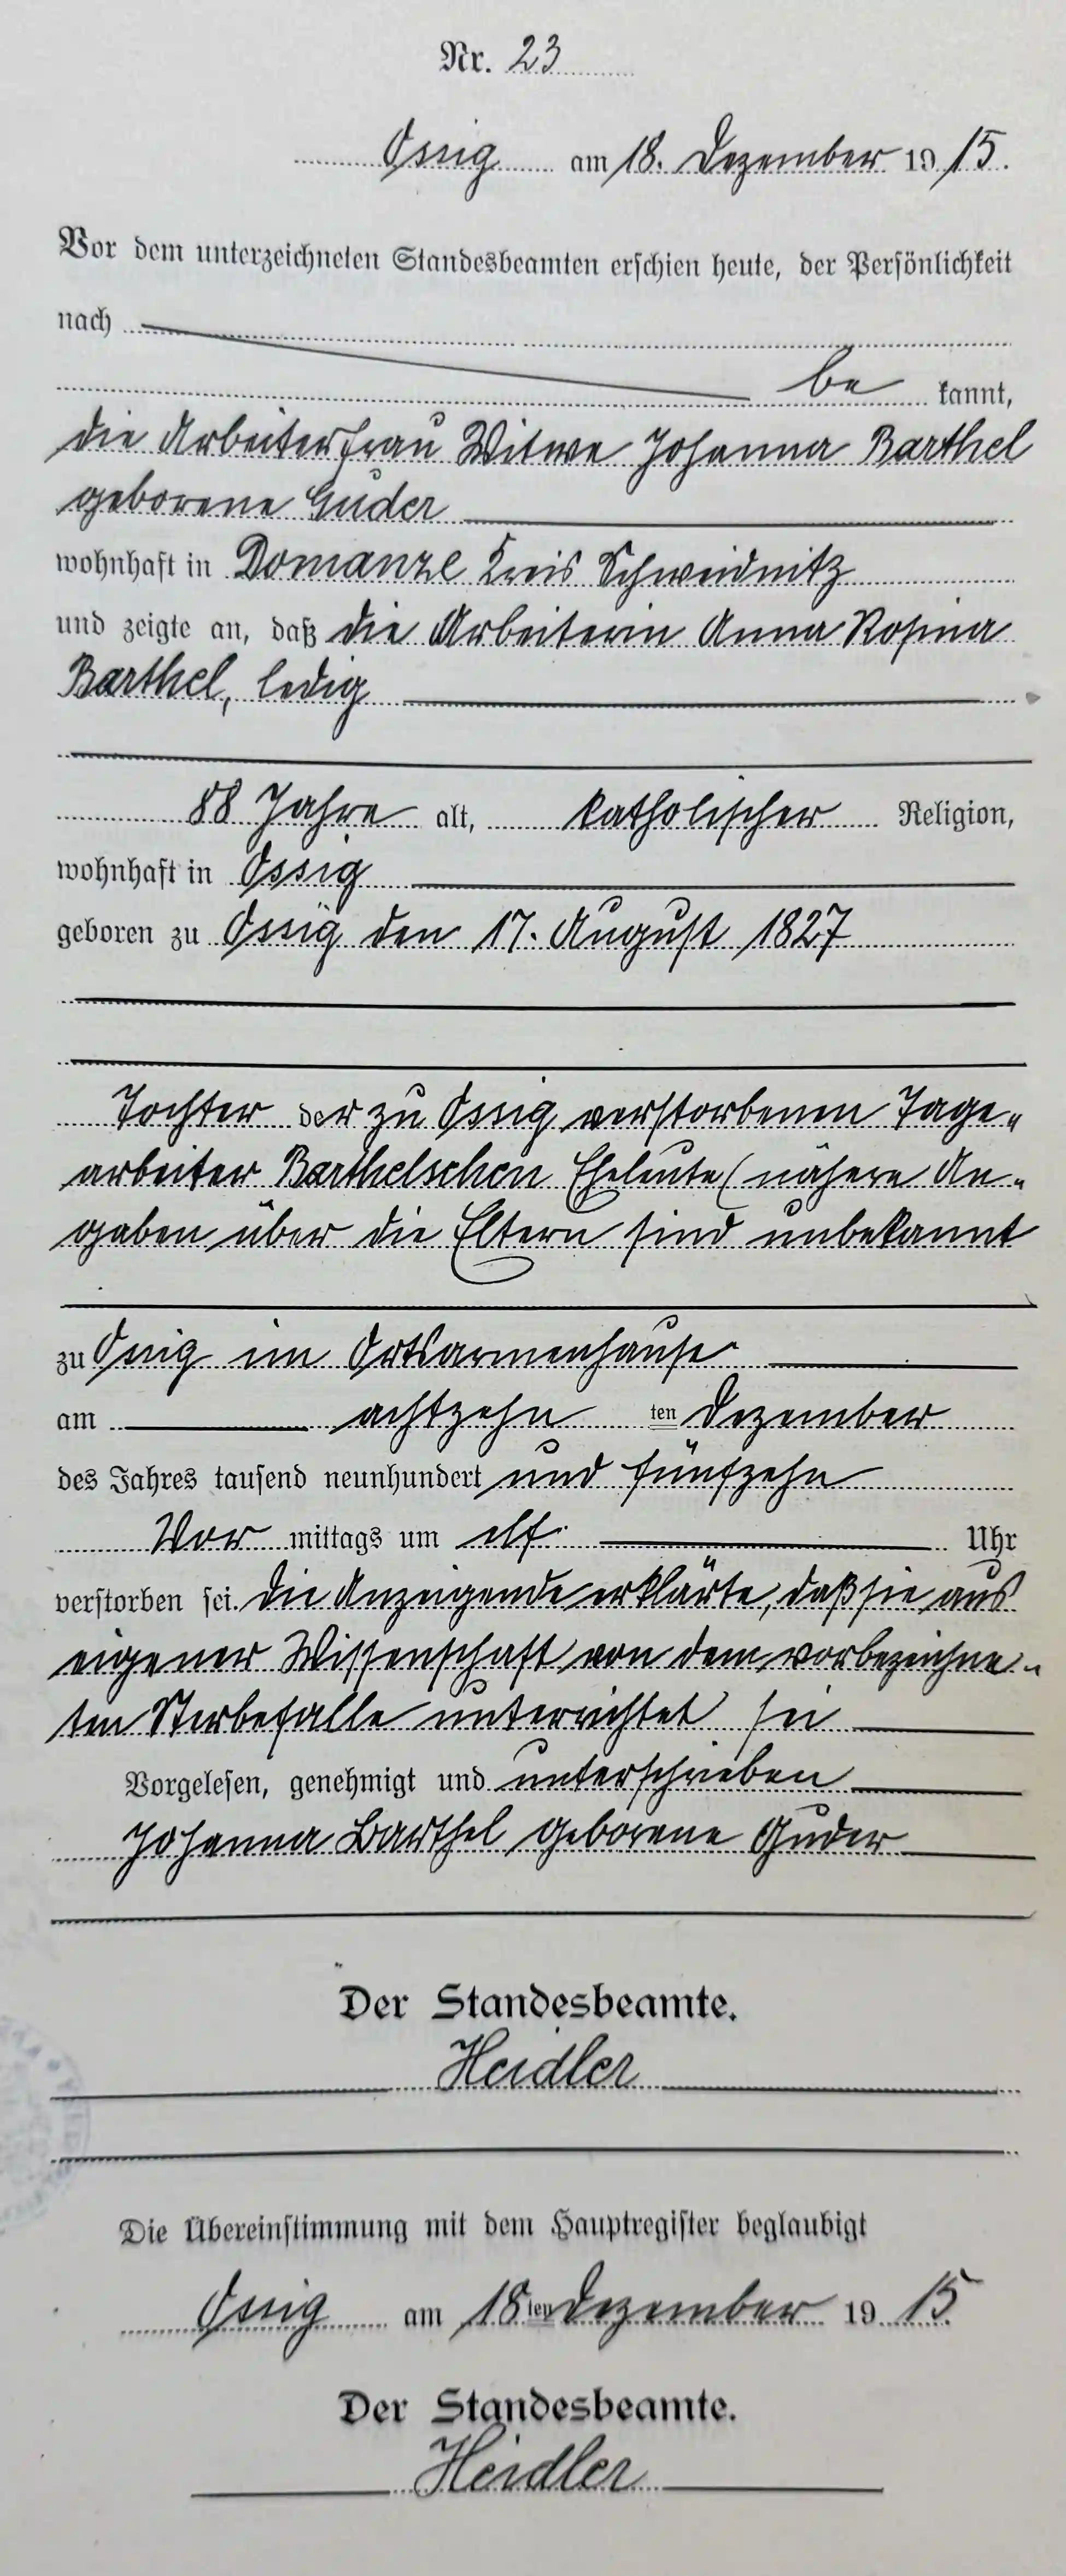 Nr. 23
Ossig am 18. Dezember 1915.
Vor dem unterzeichneten Standesbeamten erschien heute, der Persönlichkeit
nach
be kannt,
die Arbeiterfrau Witwe Johanna Barthel
geborene Guder
wohnhaft in Domanze Kreis Schweidnitz
und zeigte an, daß die Arbeiterin Anna Rosina
Barthel, ledig
88 Jahre alt, katholischer Religion,
wohnhaft in Ossig
geboren zu Ossig den 17. August 1827
Tochter der zu Ossig verstorbenen Tage-
arbeiter Barthelschen Eheleute (nähere An-
gaben über die Eltern sind unbekannt
zu Ossig im Ortsarmenhause
am achtzehn ten Dezember
des Jahres tausend neunhundert und fünfzehn
Vor mittags um elf Uhr
verstorben sei. Die Anzeigende erklärte, daß sie aus
eigener Wissenschaft von dem vorbezeichne-
ten Sterbefalle unterrichtet sei
Vorgelesen, genehmigt und unterschrieben
Johanna Barthel geborene Guder
Der Standesbeamte.
Heidler
Die Übereinstimmung mit dem Hauptregister beglaubigt
Ossig am 18ten Dezember 1915
Der Standesbeamte.
Heidler